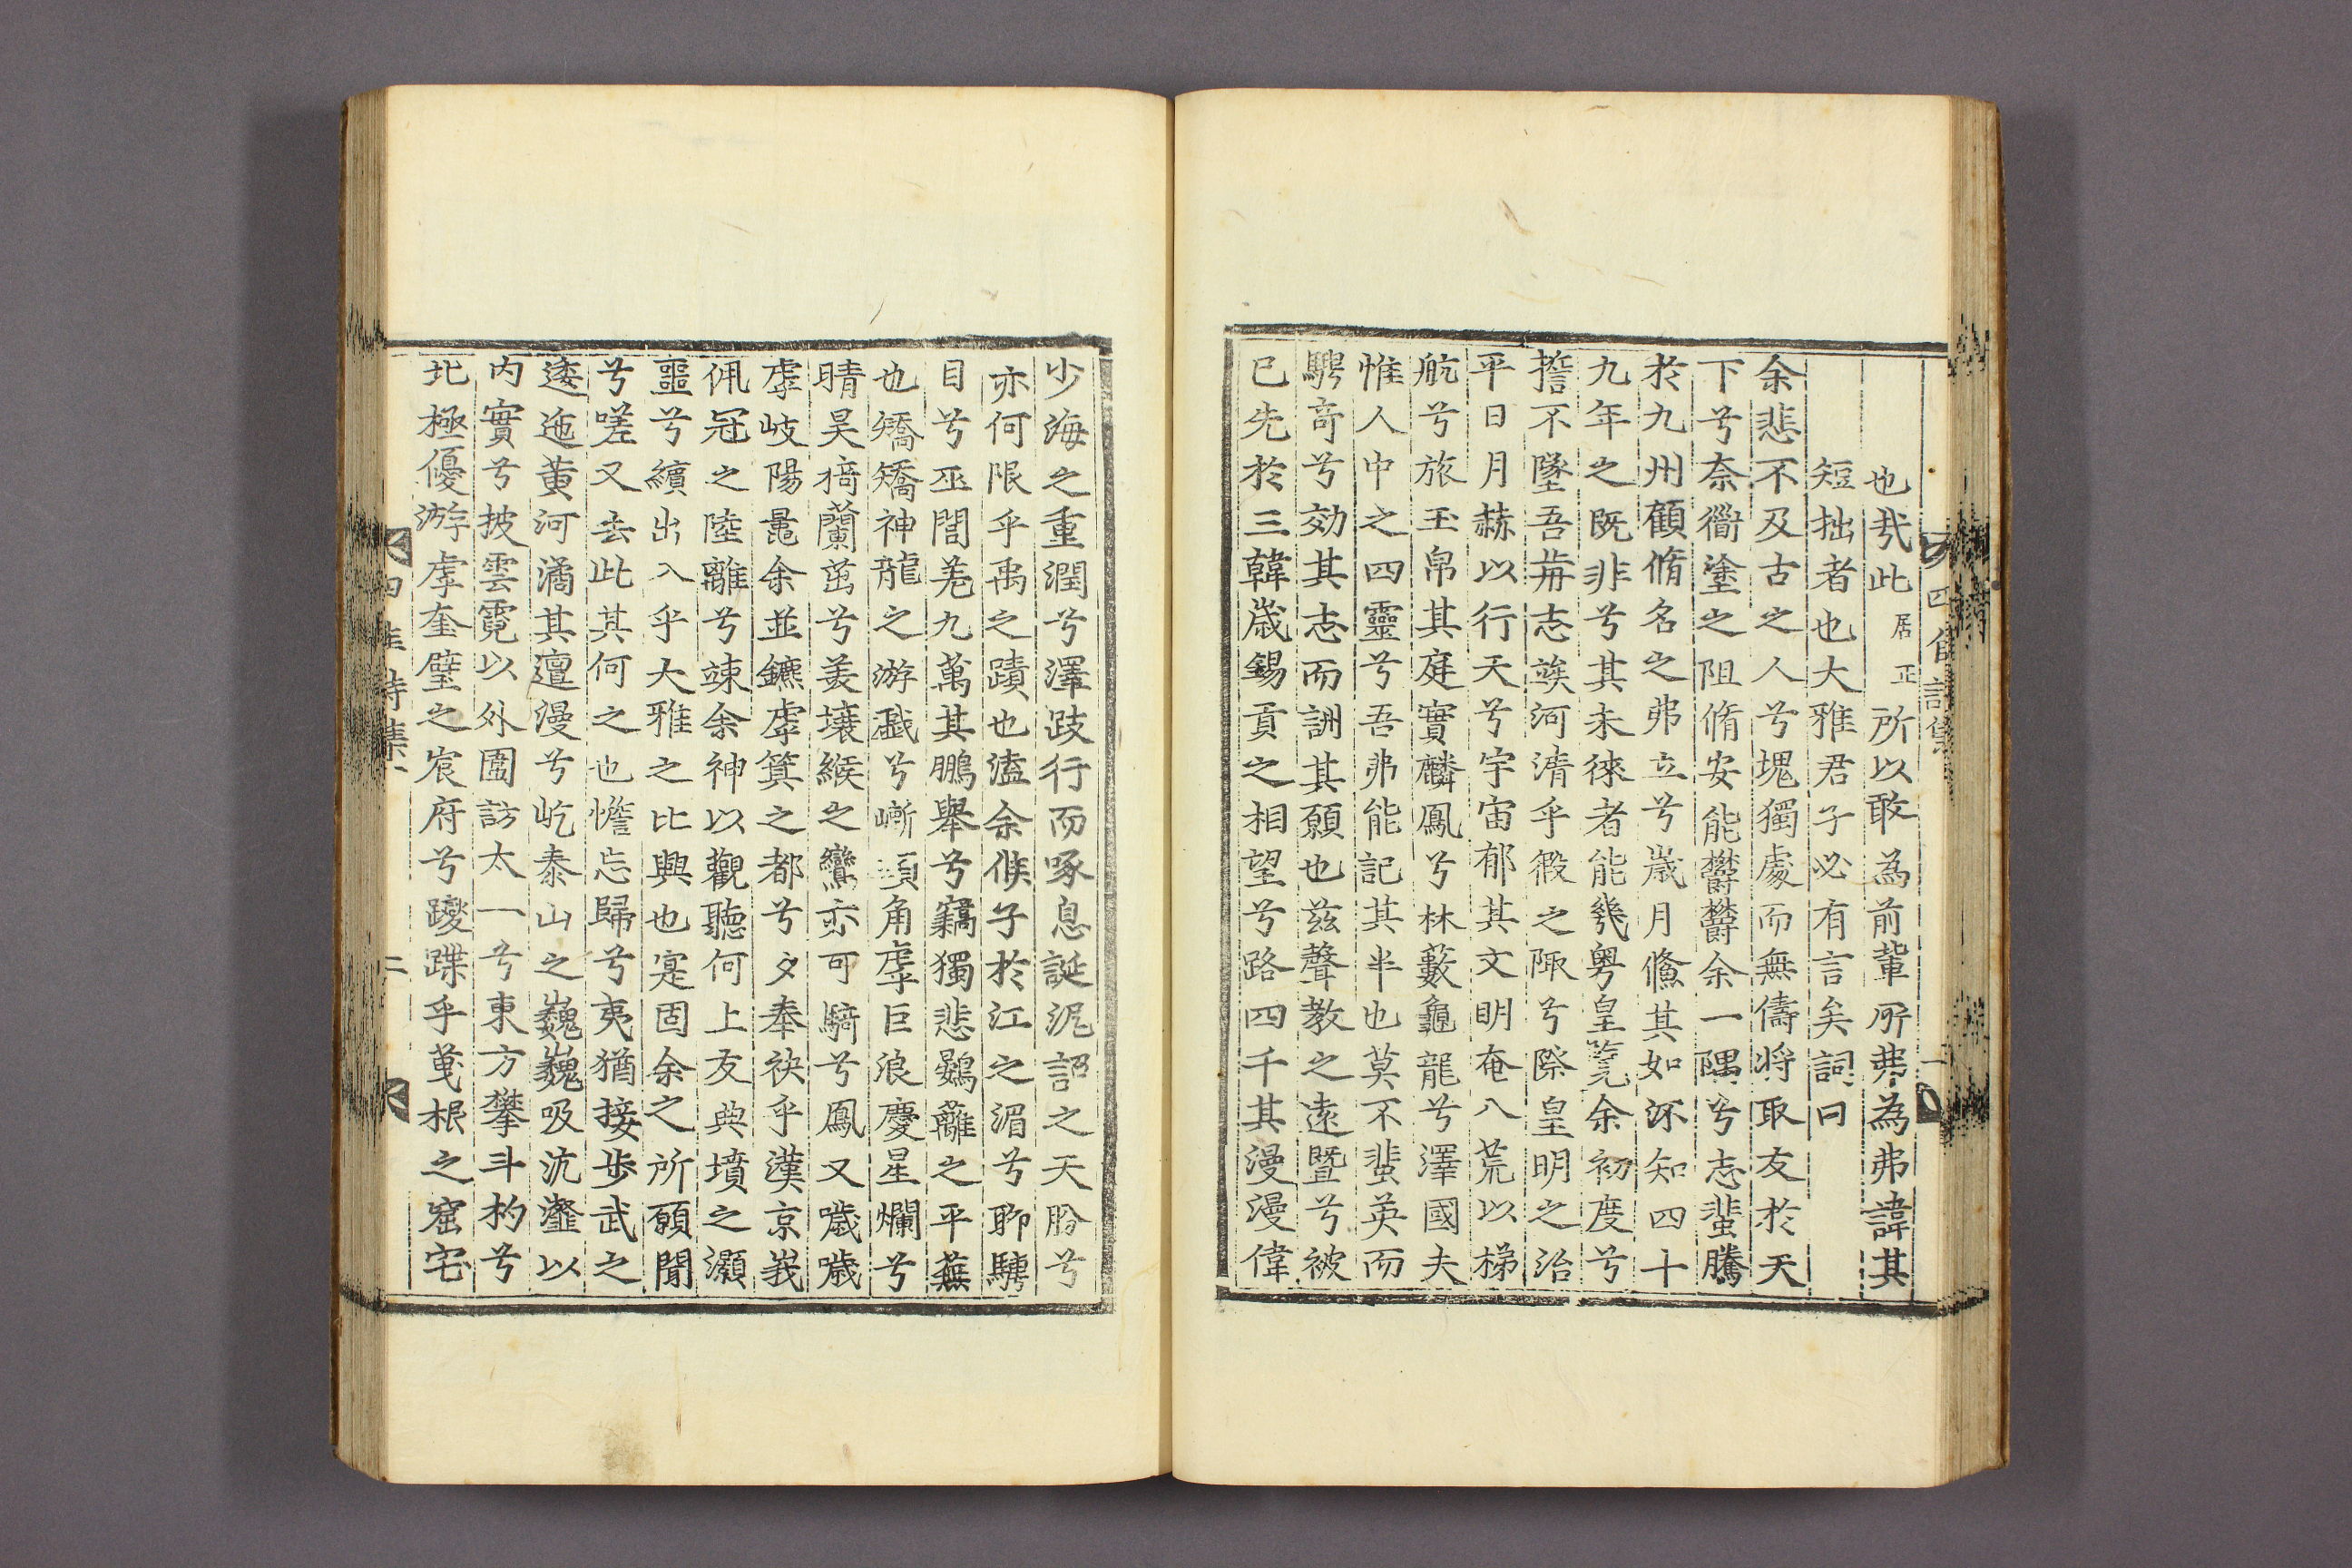 也㢤此居正所以敢為前輩所弗為弗諱其
短拙者也大雅君子必有言矣詞曰
余悲不及古之人兮塊獨處而無儔將取友於天
下兮奈衜塗之阻脩安能欝欝余一隅兮志蜚騰
於九州顧脩名之弗立兮歲月儵其如流知四十
九年之既非兮其未徠者能幾粤皇覽余初度兮
擔不墜吾前志竢河清乎叚之陬兮際皇明之治
平日月赫以行天兮宇宙郁其文明奄八荒以梯
航兮旅玉帛其庭實麟鳳兮林藪龜龍兮澤國夫
惟人中之四靈兮吾弗能記其半也莫不蜚英而
騁竒兮効其志而詶其願也兹聲教之遠曁兮被
已先於三韓歲錫貢之相望兮路四千其漫漫偉
少海之重潤兮澤跂行而喙息誕泥詔之天朌兮
亦何限乎禹之蹟也溘余俟于於江之湄兮聊騁
目兮巫閭羌九萬其鵬舉兮竊獨悲鷃蘺之平蕪
也矯矯神龍之游戲兮嶄頭角虖巨浪慶星爛兮
晴昊猗蘭茁兮羙壤緱之鸞亦可騎兮鳳又噦噦
虖岐陽鼂余並鑣虖箕之都兮夕奉袂乎漢京峩
佩冠之陸離兮竦余神以觀聽何上友典墳之灝
噩兮續出入乎大雅之比興也寔固余之所願聞
兮嗟又去此其何之也憺忘歸兮夷猶接步武之
逶迤黄河潏其邅漫兮屹泰山之巍巍吸沆瀣以
内實兮披雲霓以外圍訪太一兮東方攀斗杓兮
北極優游虖奎璧之宸府兮躨蹀乎䕫根之窟宅
四佳詩集
二